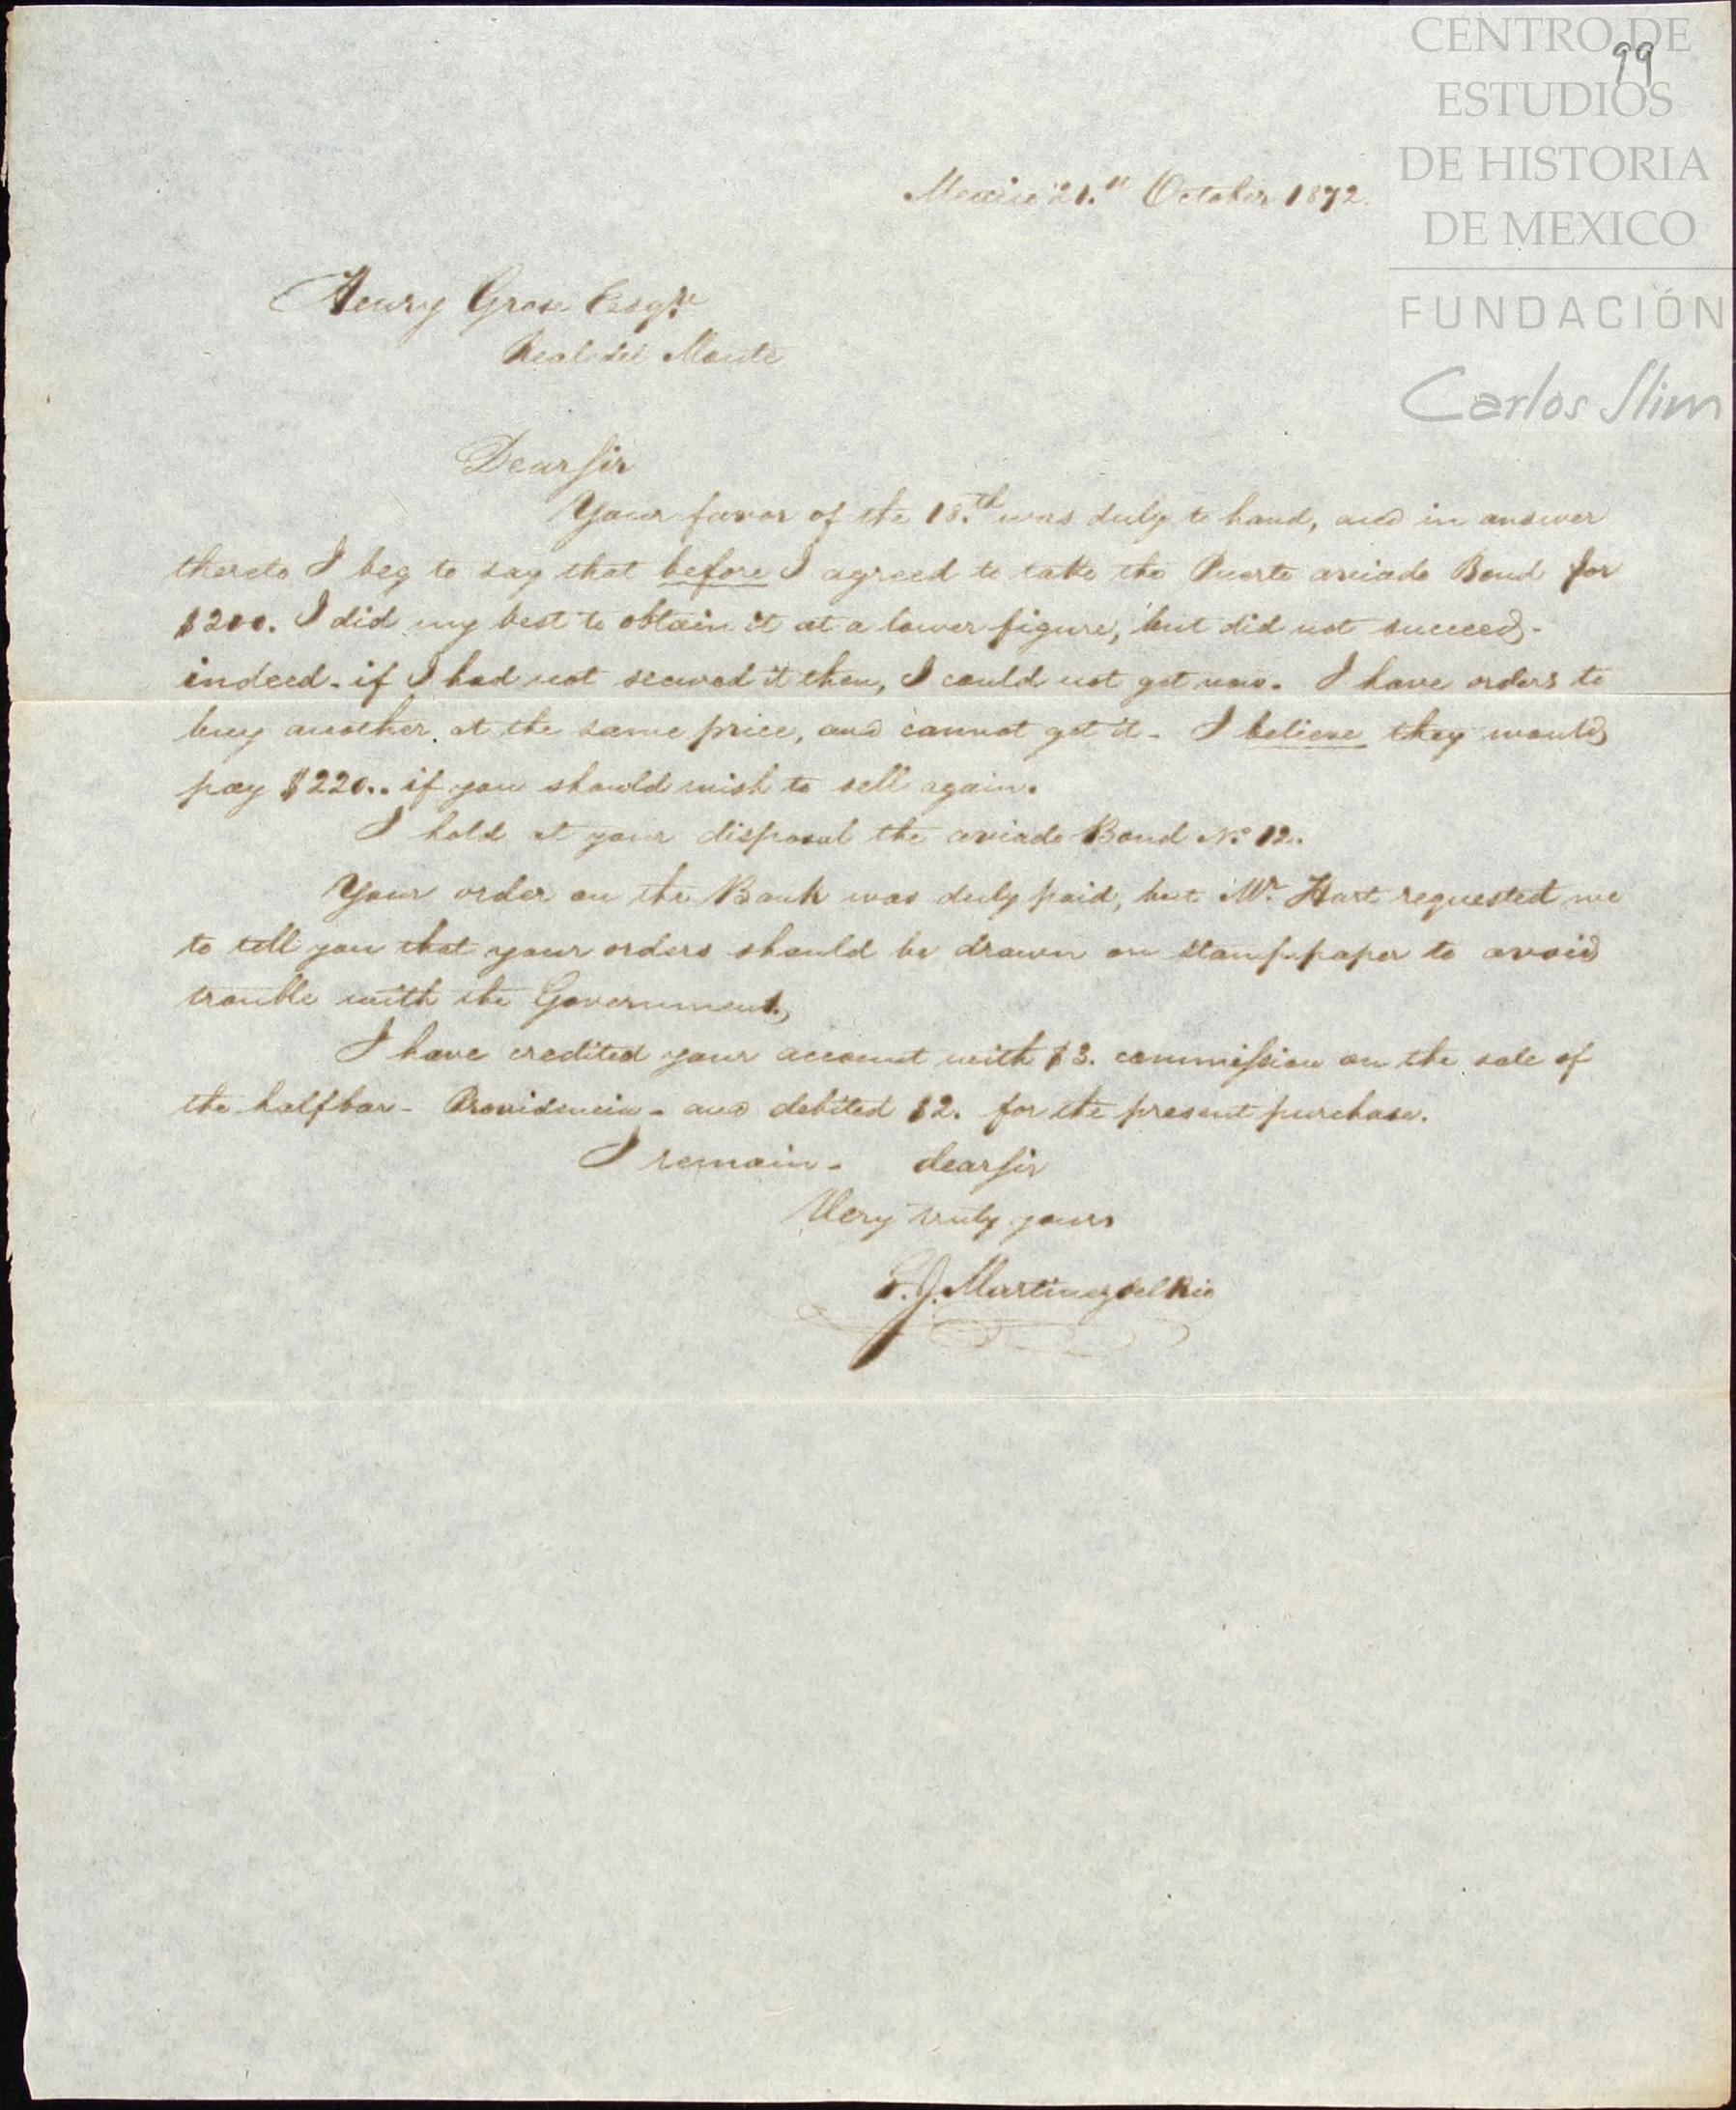 CENTRO DE
99
ESTUDIOS
DE HISTORIA
DE MEXICO
FUNDACIÓN
Carlos Slim
Mexico 21.st October 1872.
Henry Grose Esqre
Real del Monte
Dear Sir
Your favor of the 18.th was duly to hand, and in answer
thereto I beg to say that before I agreed to take the Puerto aviado Bond for
$200. I did my best to obtain it at a lower figure, but did not succeed -
indeed - if I had not secured it then, I could not get now. I have orders to
buy another at the same price, and cannot get it - I believe they would
pay $220.. if you should wish to sell again.
I hold at your disposal the aviado Bond No. 12.
Your order on the Bank was duly paid, but Mr. Hart requested me
to tell you that your orders should be drawn on stamp-paper to avoid
trouble with the Government.
I have credited your account with $3. commission on the sale of
the halfbar - Providencia - and debited $2. for the present purchase.
I remain - dear Sir
Very truly yours
Martinez del Rio